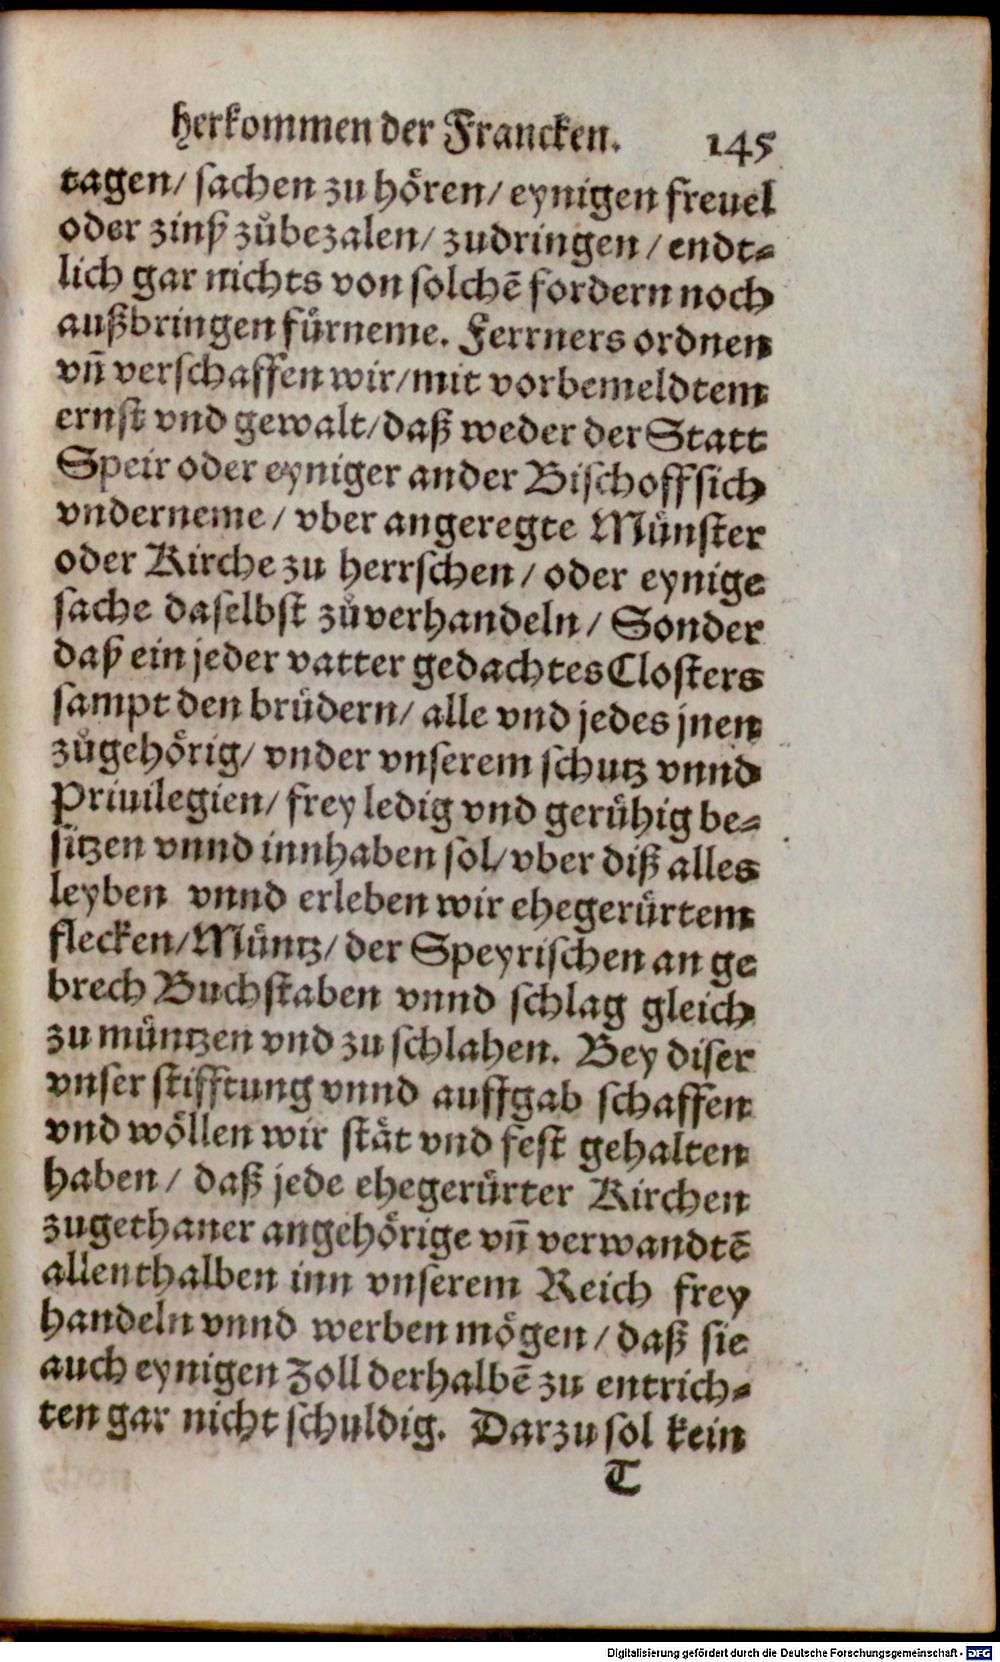 herkommen der Francken. 145
tagen/ sachen zu hoͤren/ eynigen freuel
oder zinß zůbezalen/ zudringen / endt⸗
lich gar nichts von solchẽ fordern noch
außbringen fuͤrneme. Ferrners ordnen
vñ verschaffen wir/ mit vorbemeldtem
ernst vnd gewalt/ daß weder der Statt
Speir oder eyniger ander Bischoff sich
vnderneme / vber angeregte Muͤnster
oder Kirche zu herrschen / oder eynige
sache daselbst zůverhandeln / Sonder
daß ein jeder vatter gedachtes Closters
sampt den bruͤdern/ alle vnd jedes jnen
zůgehoͤrig/ vnder vnserem schutz vnnd
Priuilegien/ frey ledig vnd geruͤhig be⸗
sitzen vnnd innhaben sol/ vber diß alles
leyben vnnd erleben wir ehegeruͤrtem
flecken/ Muͤntz/ der Speyrischen an ge
brech Buchstaben vnnd schlag gleich
zu muͤntzen vnd zu schlahen. Bey diser
vnser stifftung vnnd auffgab schaffen
vnd woͤllen wir staͤt vnd fest gehalten
haben / daß jede ehegeruͤrter Kirchen
zugethaner angehoͤrige vñ verwandtẽ
allenthalben inn vnserem Reich frey
handeln vnnd werben moͤgen / daß sie
auch eynigen Zoll derhalbẽ zu entrich⸗
ten gar nicht schuldig. Darzu sol kein
T
Digitalisierung gefördert durch die Deutsche Forschungsgemeinschaft - DFG